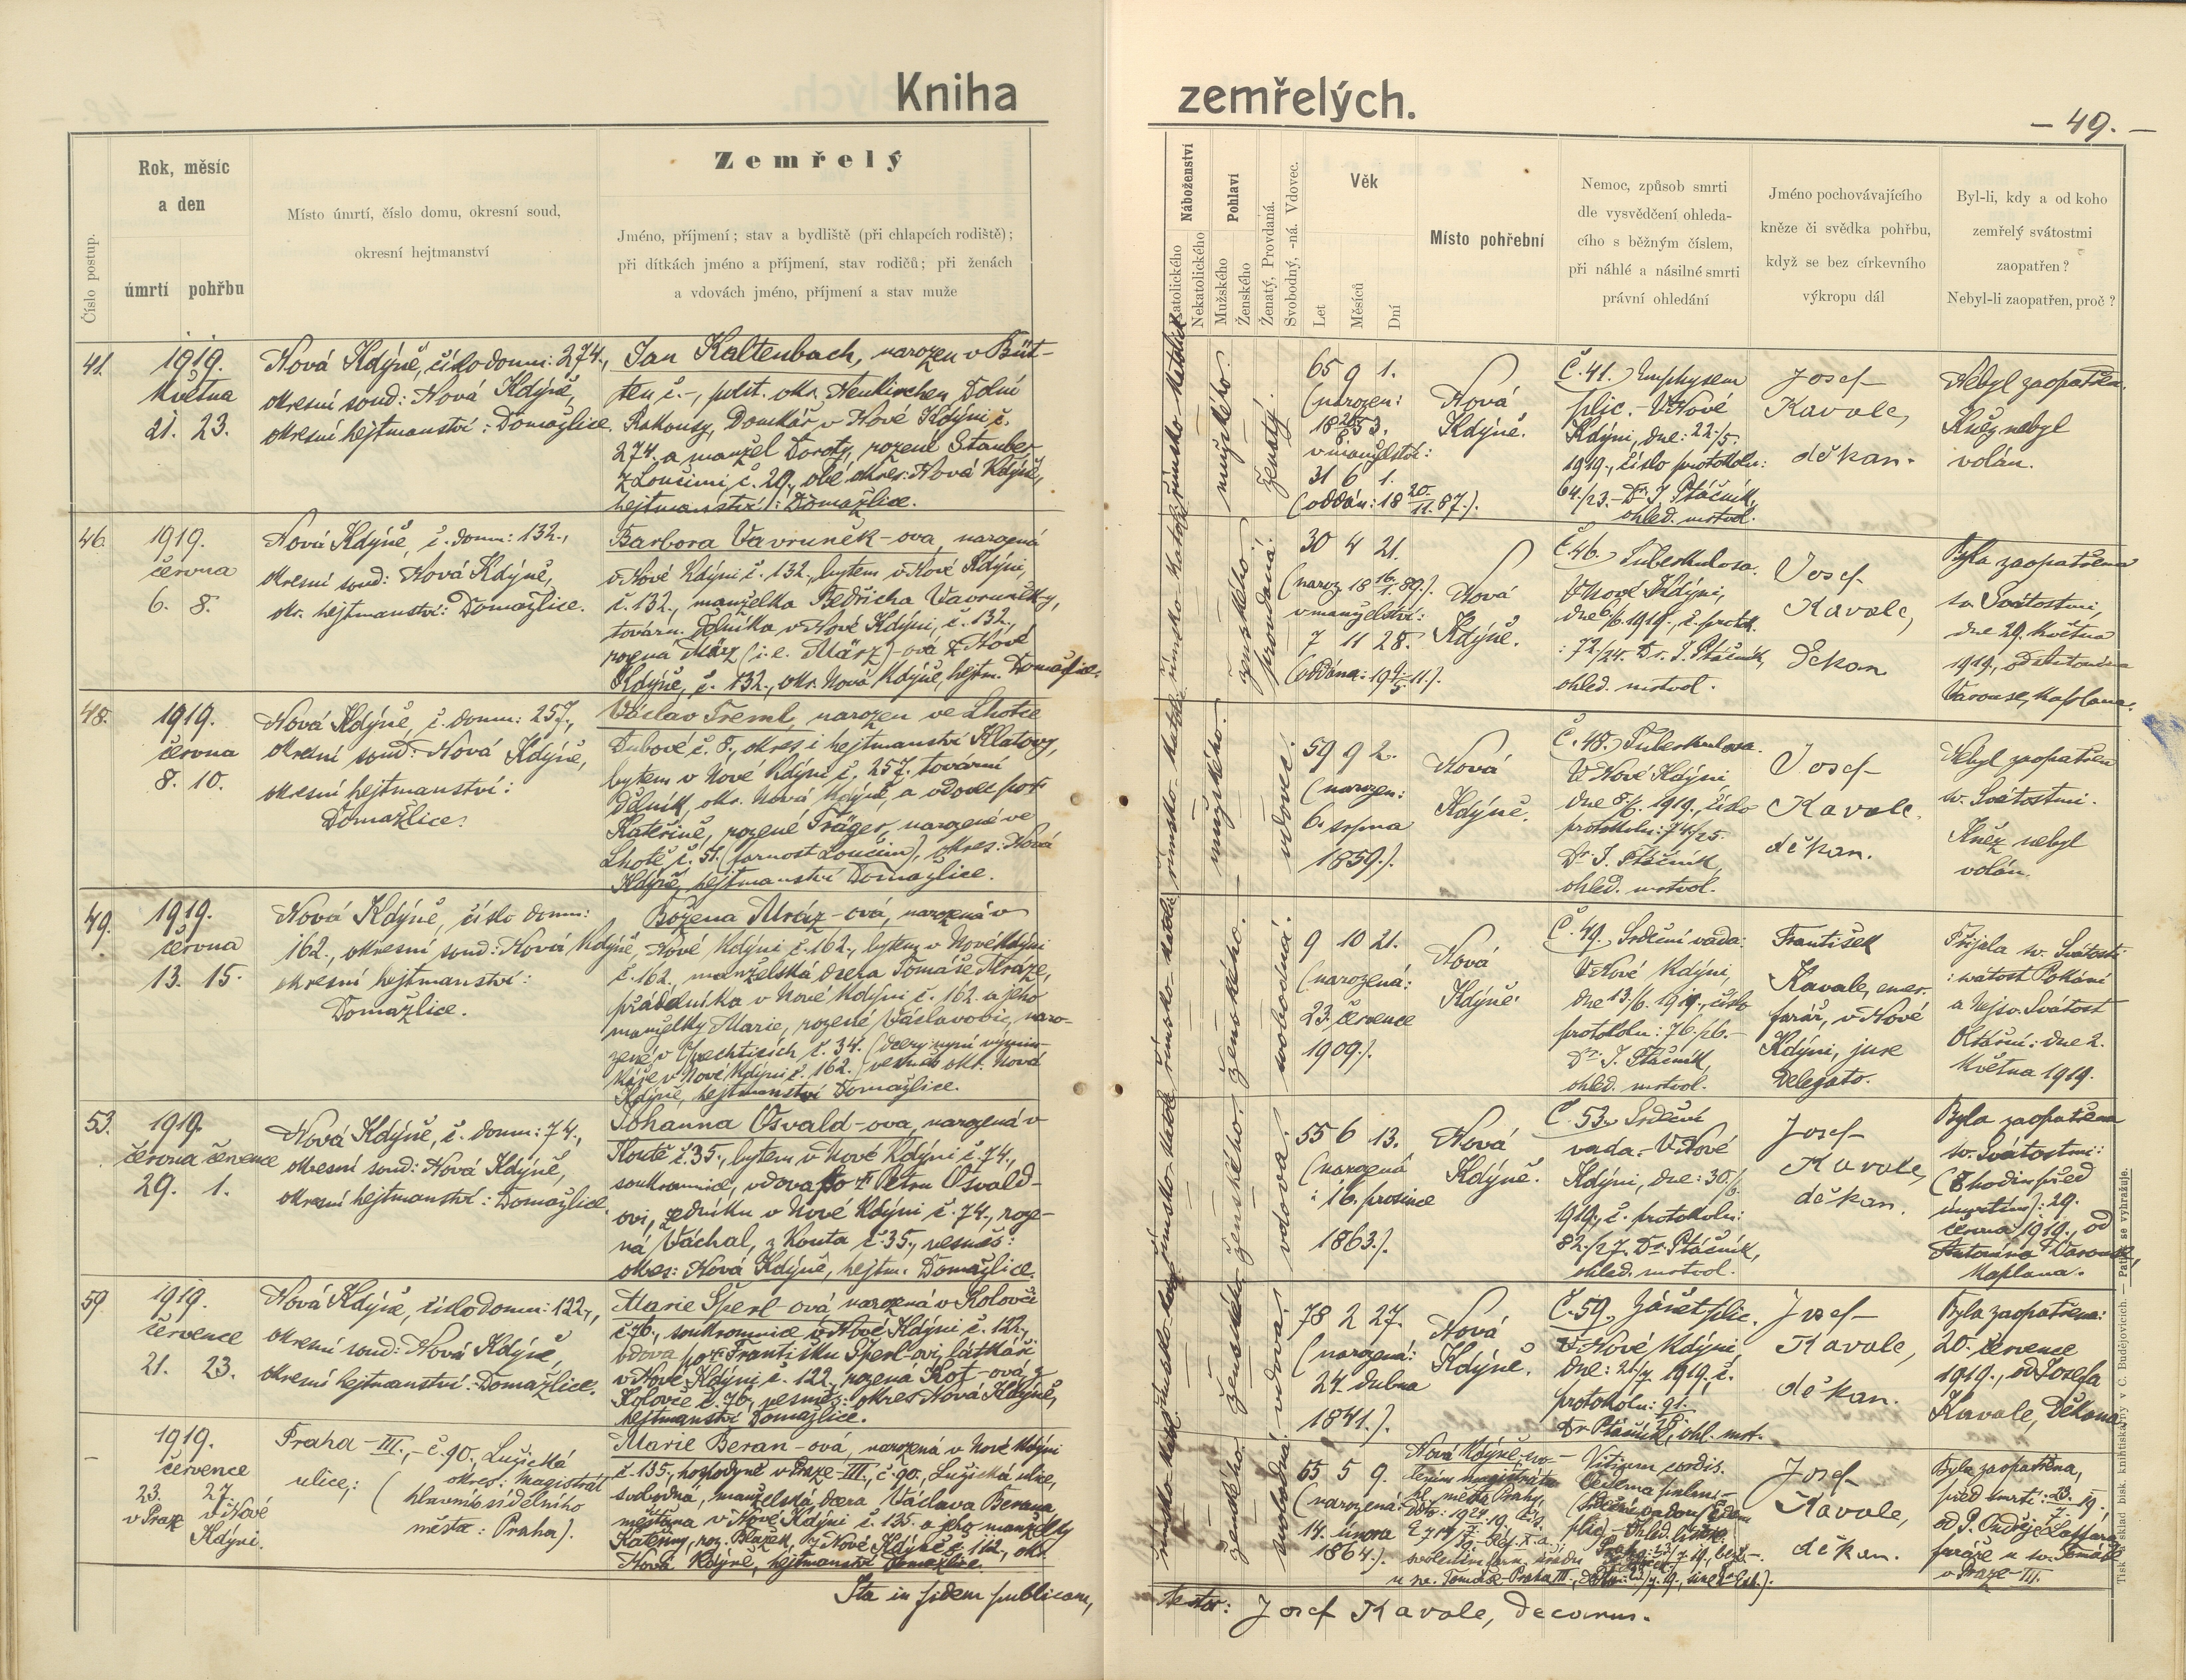 Kniha
zemřelých.
— 49. —
Číslo postup.
Rok, měsíc
a den
úmrtí pohřbu
Místo úmrtí, číslo domu, okresní soud,
okresní hejtmanství
Zemřelý
Jméno, příjmení; stav a bydliště (při chlapcích rodiště);
při dítkách jméno a příjmení, stav rodičů; při ženách
a vdovách jméno, příjmení a stav muže
Náboženství
Katolického
Nekatolického
Pohlaví
Mužského
Ženského
Ženatý, Provdaná.
Svobodný, -ná. Vdovec.
Věk
Let
Měsíců
Dní
Místo pohřební
Nemoc, způsob smrti
dle vysvědčení ohleda-
cího s běžným číslem,
při náhlé a násilné smrti
právní ohledání
Jméno pochovávajícího
kněze či svědka pohřbu,
když se bez církevního
výkropu dál
Byl-li, kdy a od koho
zemřelý svátostmi
zaopatřen?
Nebyl-li zaopatřen, proč?
41.
1919.
května
21. 23.
Nová Kdýně, číslo domu: 274.,
okresní soud: Nová Kdýně,
okresní hejtmanství: Domažlice.
Jan Kaltenbach, narozen v Büt-
ten č.–, polit. okr. Neukirchen, Dolní
Rakousy, Domkář v Nové Kdýni č.
274. a manžel Doroty, rozené Stauber
z Loučimi č. 29., obé okres: Nová Kdýně,
hejtmanství: Domažlice.
římsko-katolické
mužského.
ženatý.
65 9 1.
(narozen:
18 20/8 53.
v manželství:
31 6 1.
(oddán: 18 20/11. 87.).
Nová
Kdýně.
Č. 41. Emphysem
plic. – V Nové
Kdýni, dne: 22./5.
1919., číslo protokolu:
64./23. – Dr. J. Ptáčník,
ohled. mrtvol.
Josef
Kavale,
děkan.
Nebyl zaopatřen.
Kněz nebyl
volán.
46.
1919.
června
6. 8.
Nová Kdýně, č. domu: 132.,
okresní soud: Nová Kdýně,
okr. hejtmanství: Domažlice.
Barbora Vavruněk-ova, narozená
v Nové Kdýni č. 132., bytem v Nové Kdýni,
č. 132., manželka Bedřicha Vavruňka,
tovární. dělníka v Nové Kdýni, č. 132.,
rozená März (i.e. März)-ová z Nové
Kdýně, č. 132., okr. Nová Kdýně, hejtm. Domažlice.
ženského
provdaná.
30 4 21.
(naroz. 18 16/1. 89.).
v manželství:
7 11 28.
(oddána: 19 9/5 11.).
Nová
Kdýně.
Č. 46. Tuberkulosa.
V Nové Kdýni,
dne 6./6. 1919., č. protok.
: 72./24. Dr. J. Ptáčník,
ohled. mrtvol.
Josef
Kavale,
děkan
Byla zaopatřena
sv. Svátostmi,
dne 29. května
1919, od Antonína
Varouse, kaplana.
48.
1919.
června
8. 10.
Nová Kdýně, č. domu: 257.,
okresní soud: Nová Kdýně,
okresní hejtmanství:
Domažlice.
Václav Treml, narozen ve Lhotce
Dubové č. 8., okres i hejtmanství Klatovy,
bytem v Nové Kdýni č. 257. tovární
dělník, okr. Nová Kdýně, a vdovec po †
Kateřině, rozené Träger, narozené ve
Lhotě č. 51. (farnost Loučim), okres: Nová
Kdýně, hejtmanství Domažlice.
mužského.
vdovec.
59 9 2.
(narozen:
6. srpna
1859.).
Nová
Kdýně.
Č. 48. Tuberkulosa.
V Nové Kdýni
dne 8./6. 1919., číslo
protokolu: 74./25.
Dr. J. Ptáčník,
ohled. mrtvol.
Josef
Kavale.
děkan.
Nebyl zaopatřen
sv. Svátostmi.
Kněz nebyl
volán.
49.
1919.
června
13. 15.
Nová Kdýně, číslo domu:
162., okresní soud: Nová Kdýně,
okresní hejtmanství:
Domažlice.
Božena Mráz-ová, narozená v
Nové Kdýni č. 162., bytem v Nové Kdýni
č. 162., manželská dcera Tomáše Mráze,
přádelníka v Nové Kdýni č. 162. a jeho
manželky Marie, rozené Václavovic, naro-
zené v č. 34.
v Nové Kdýni č. 162. okr. Nová
Kdýně, hejtmanství Domažlice.
ženského.
svobodná.
9 10 21.
(narozená:
23. července
1909.).
Nová
Kdýně.
Č. 49. Srdeční vada.
V Nové Kdýni,
dne 13./6. 1919., číslo
protokolu: 76./26. –
Dr. J. Ptáčník,
ohled. mrtvol.
František
Kavale, emer.
farář, v Nové
Kdýni, jure
delegato.
Přijala sv. Svátosti
: svátost Pokání
a Nejsv. Svátost
Oltářní: dne 2.
května 1919.
53.
1919.
června července
29. 1.
Nová Kdýně, č. domu: 74.,
okresní soud: Nová Kdýně,
okresní hejtmanství: Domažlice.
Johanna Osvald-ova, narozená v
Koutě č. 35., bytem v Nové Kdýni č. 74.,
soukromnice, vdova po † Petru Osvald-
ovi, zedníku v Nové Kdýni č. 74., roze-
ná Váchal, z Kouta č. 35., vesměs:
okres: Nová Kdýně, hejtm. Domažlice.
ženského.
vdova.
55 6 13.
(narozená
: 16. prosince
1863.).
Nová
Kdýně.
Č. 53. Srdeční
vada. – V Nové
Kdýni, dne: 30./6.
1919., č. protokolu:
82./27. Dr. Ptáčník,
ohled. mrtvol.
Josef
Kavale,
děkan.
Byla zaopatřena
sv. Svátostmi:
(8 hodin před
úmrtím): 29.
června 1919., od
Antonína Varouse,
kaplana.
59.
1919.
července
21. 23.
Nová Kdýně, číslo domu: 122.,
okresní soud: Nová Kdýně,
okresní hejtmanství: Domažlice.
Marie Šperl-ová, narozená v Kolovči
č. 76., soukromnice v Nové Kdýni č. 122.,
vdova po † Františku Šperl-ovi, látkaři
v Nové Kdýni č. 122., rozená Kof-ová, z
Kolovče č. 76., vesměs: okres Nová Kdýně,
hejtmanství Domažlice.
ženského
vdova.
78 2 27.
(narozená:
24. dubna
1841.).
Nová
Kdýně.
Č. 59. Zánět plic.
V Nové Kdýni
dne: 21./7. 1919., č.
protokolu: 91./28.
Dr. Ptáčník, ohl. mrt.
Josef
Kavale,
děkan.
Byla zaopatřena:
20. července
1919., od Josefa
Kavale, děkana.
–
1919.
července
23. 27.
v Praze v Nové
Kdýni.
Praha-III., – č. 90., Lužická
ulice,: (okres: Magistrát
hlavního sídelního
města: Praha).
Marie Beran-ová, narozená v Nové Kdýni
č. 135., hospodyně v Praze-III., č. 90., Lužická ulice,
svobodná, manželská dcera Václava Berana,
měšťana v Nové Kdýni č. 135. a jeho manželky
Kateřiny, roz. Blažek, z Nové Kdýně č. 162., okr.
Nová Kdýně, hejtmanství Domažlice.
ženského.
svobodná.
55 5 9.
(narozená
14. února
1864.).
Nová Kdýně,
magistrátu
hl. města Prahy,
u sv. Tomáše-Praha III.,
Vitium cordis.
Oedema pulm.
Josef
Kavale,
děkan.
Byla zaopatřena,
před smrtí: 23./7. 19.,
od P. Ondřeje
faráře u sv. Tomáše
v Praze-III.
Ita in fidem publicam,
testor: Josef Kavale, decanus.
Tisk a sklad bisk. knihtiskárny v Č. Budějovicích. — Patisk se vyhražuje.